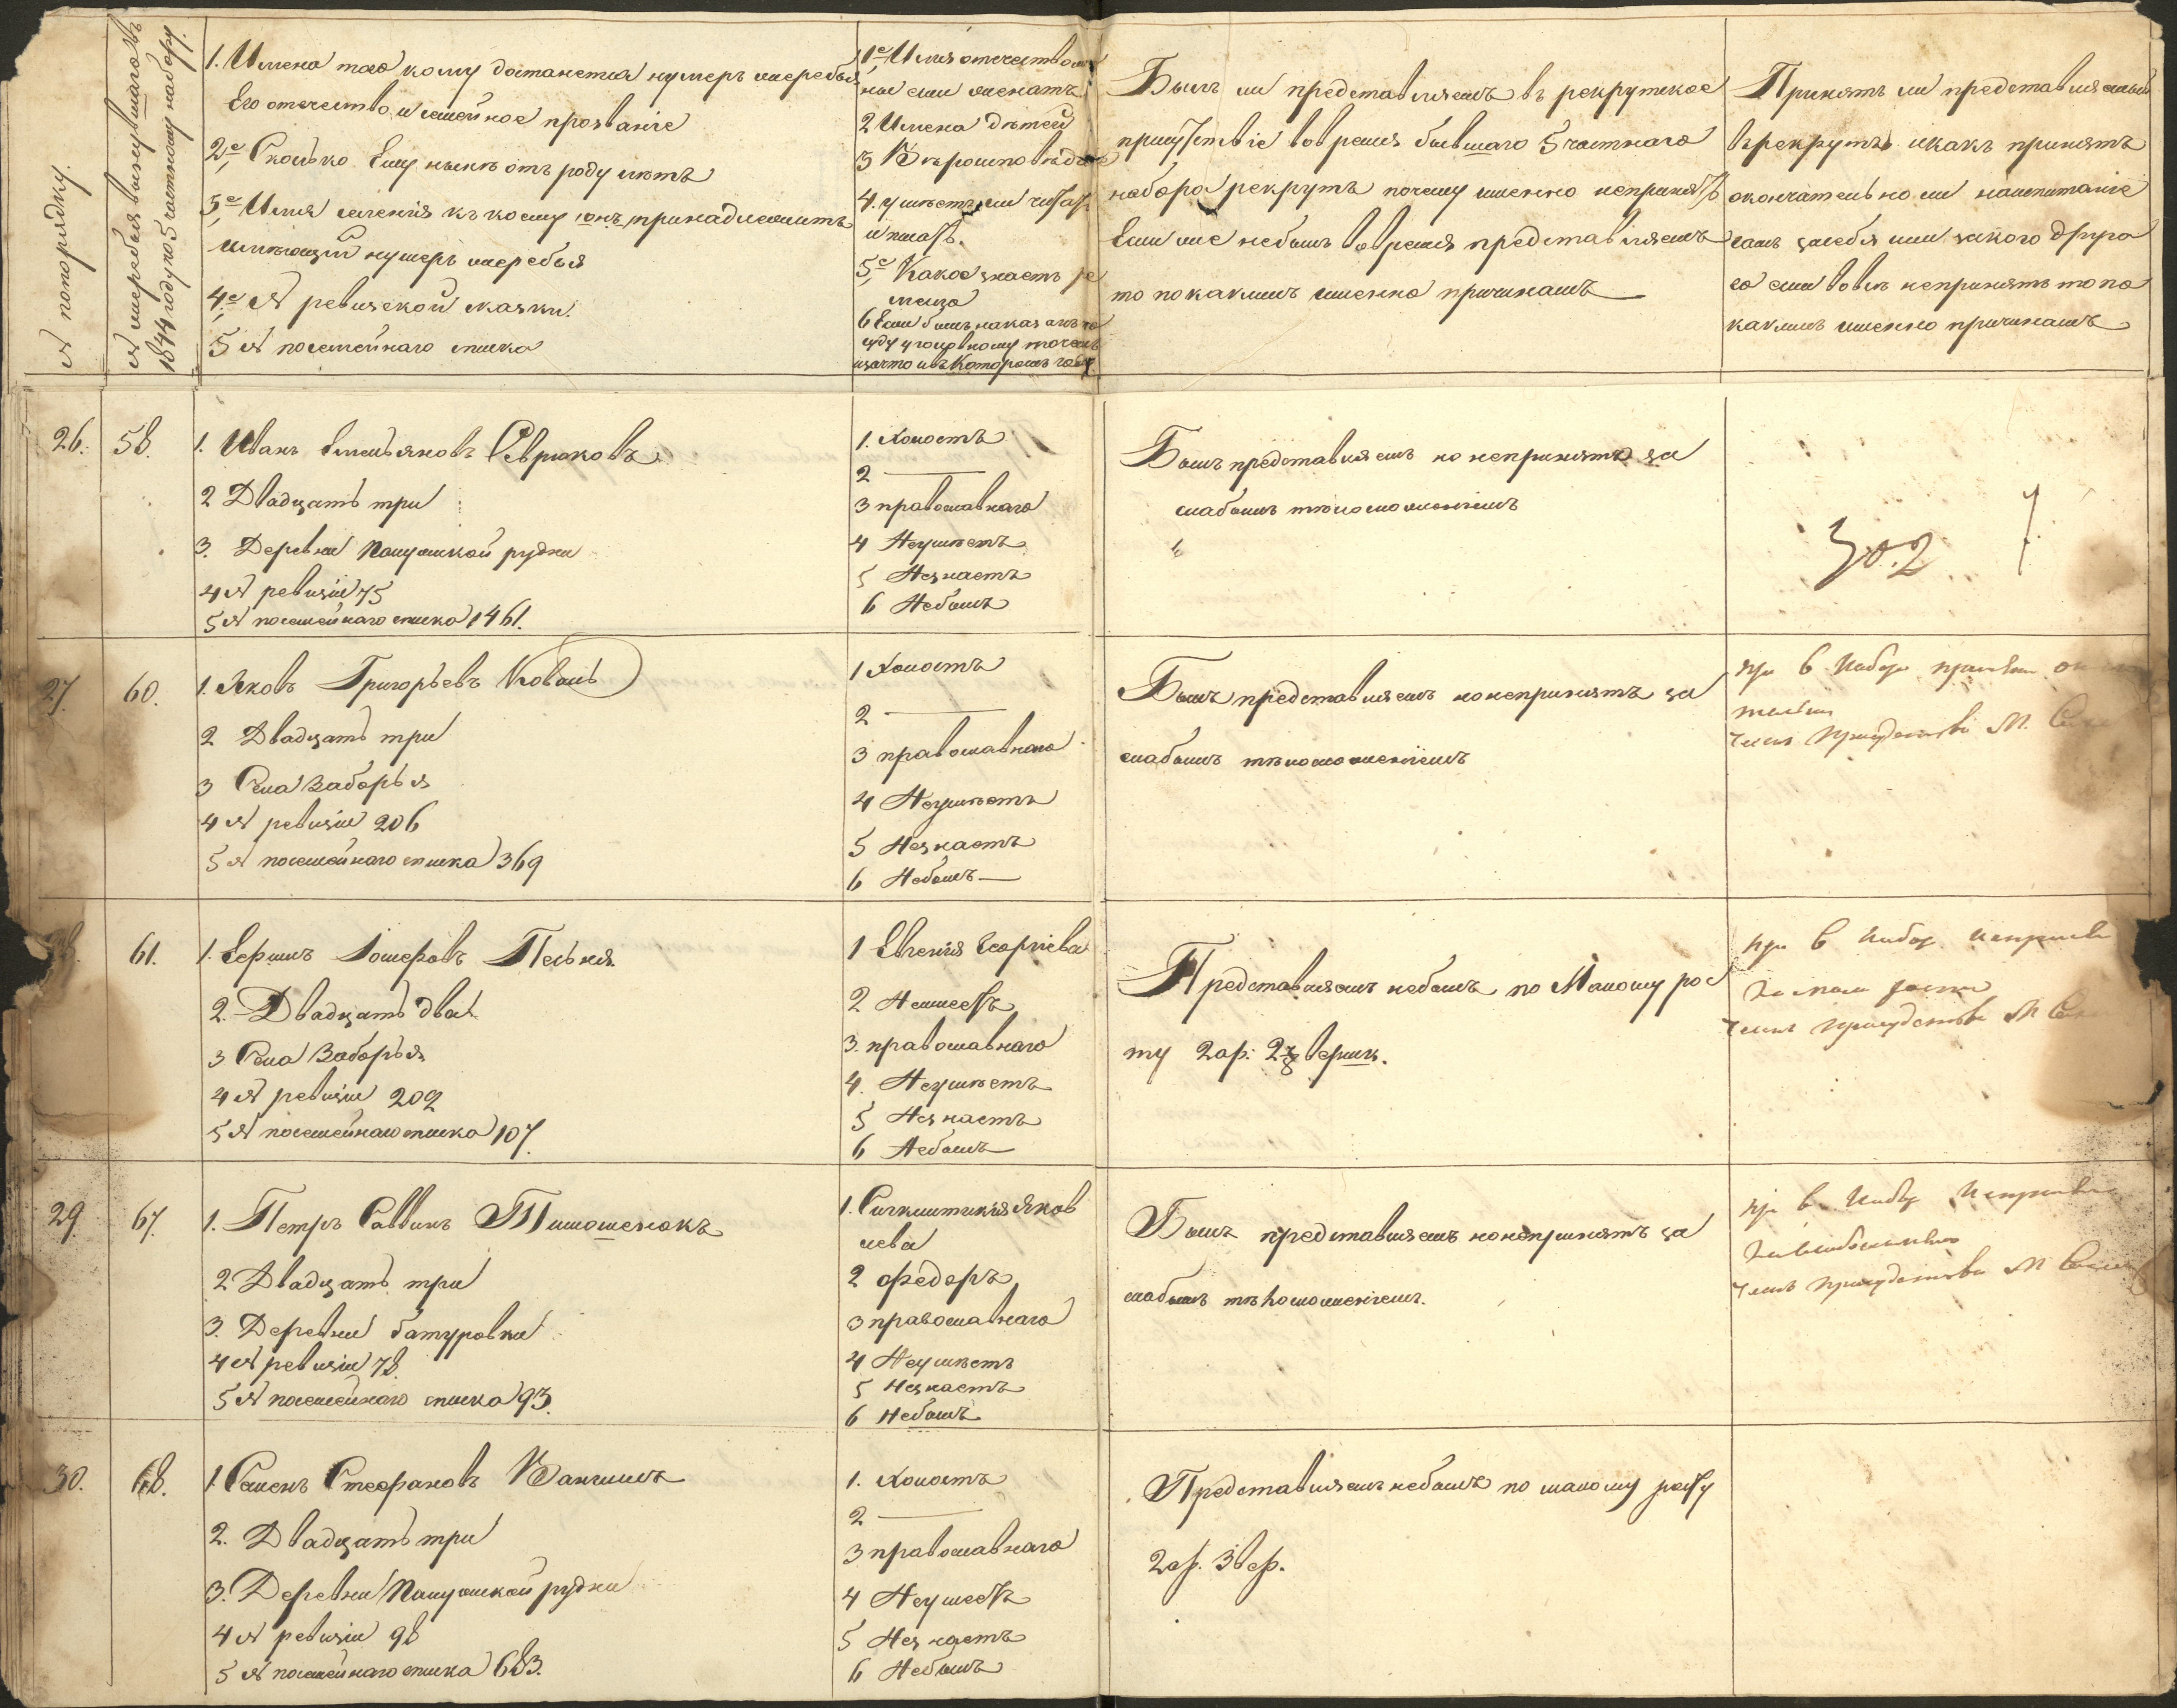 № попорядку.
№ жеребья вынувшагося въ
1844 году по 5 частному набору.
1. Имена того кому достанется нумеръ жеребья
Его отечество и семейное прозваніе
2е Сколько Ему нынѣ отъ роду лѣтъ
3е Имя селенія къ коему онъ принадлежитъ
имѣющій нумеръ жеребья
4е № ревизской сказки.
5 № посемейнаго списка
1е Имя отечество
или женатъ
2 Имена дѣтей
3 Вѣроисповѣданіе
4. умѣетъ ли читать
и писать.
5е Какое знаетъ ре
месло
6 Если былъ наказанъ по
суду уголовному то
за что и въ которомъ году
Былъ ли представляемъ въ рекрутское
присутствіе вовремя бывшаго 5 частнаго
набора рекрутъ почему именно непринятъ
Если же небылъ вовремя представляемъ
то по какимъ именно причинамъ
Принятъ ли представляемый
врекруты икакъ принятъ
окончательно ли наиспытаніе
самъ засебя или закого друга
го если вовсе непринятъ то по
какимъ именно причинамъ
26.
58.
1. Иванъ Емельяновъ Севрюковъ
2 Двадцать три
3. Деревни Папужской рудни
4 № ревизіи 75
5 № посемейнаго списка 1461.
1. Холостъ
2 —
3 православнаго
4 Неумѣетъ
5 Незнаетъ
6 Небылъ
Былъ представляемъ но непринятъ за
слабымъ тѣлосложеніемъ
30.2
27.
60.
1. Яковъ Григорьевъ Коваль
2 Двадцать три
3 Села Заборья
4 № ревизіи 206
5 № посемейнаго списка 369
1 Холостъ
2 —
3 православнаго
4 Неумѣетъ
5 Незнаетъ
6 Небылъ
Былъ представляемъ но непринятъ за
слабымъ тѣлосложеніемъ
при 6 Наборѣ принятъ
Членъ Присудствія М.
61.
1. Ефимъ Пенкя
2. Двадцать два
3 Села Заборья
4 № ревизіи 209
5 № посемейнаго списка 107.
1 Евгенія Георгіева
2 Неимеетъ
3. православнаго
4. Неумѣетъ
5 Незнаетъ
6 Небылъ
Представляемъ небылъ по Малому рос
ту 2 ар. вершк.
при 6 Наборѣ
За малы ростъ
Членъ Присудствія М
29.
67.
1. Петръ Саввинъ Тимошенокъ
2 Двадцать три
3. Деревни Батуровки
4 № ревизіи 78.
5 № посемейнаго списка 93.
1. Яков
лева
2 Федоръ
3 православнаго
4 Неумѣетъ
5 Незнаетъ
6 Небылъ
Былъ представляемъ но непринятъ за
слабымъ тѣлосложеніемъ.
при 6 Наборѣ
Членъ Присудствія М
30.
68.
1. Семенъ Стефановъ
2. Двадцать три
3. Деревни Папужской рудни
4 № ревизіи 98
5 № посемейнаго списка 683.
1. Холостъ
2 —
3 православнаго
4 Неумеетъ
5 Незнаетъ
6 Небылъ
Представляемъ небылъ по малому росту
2 ар. 3 вер.